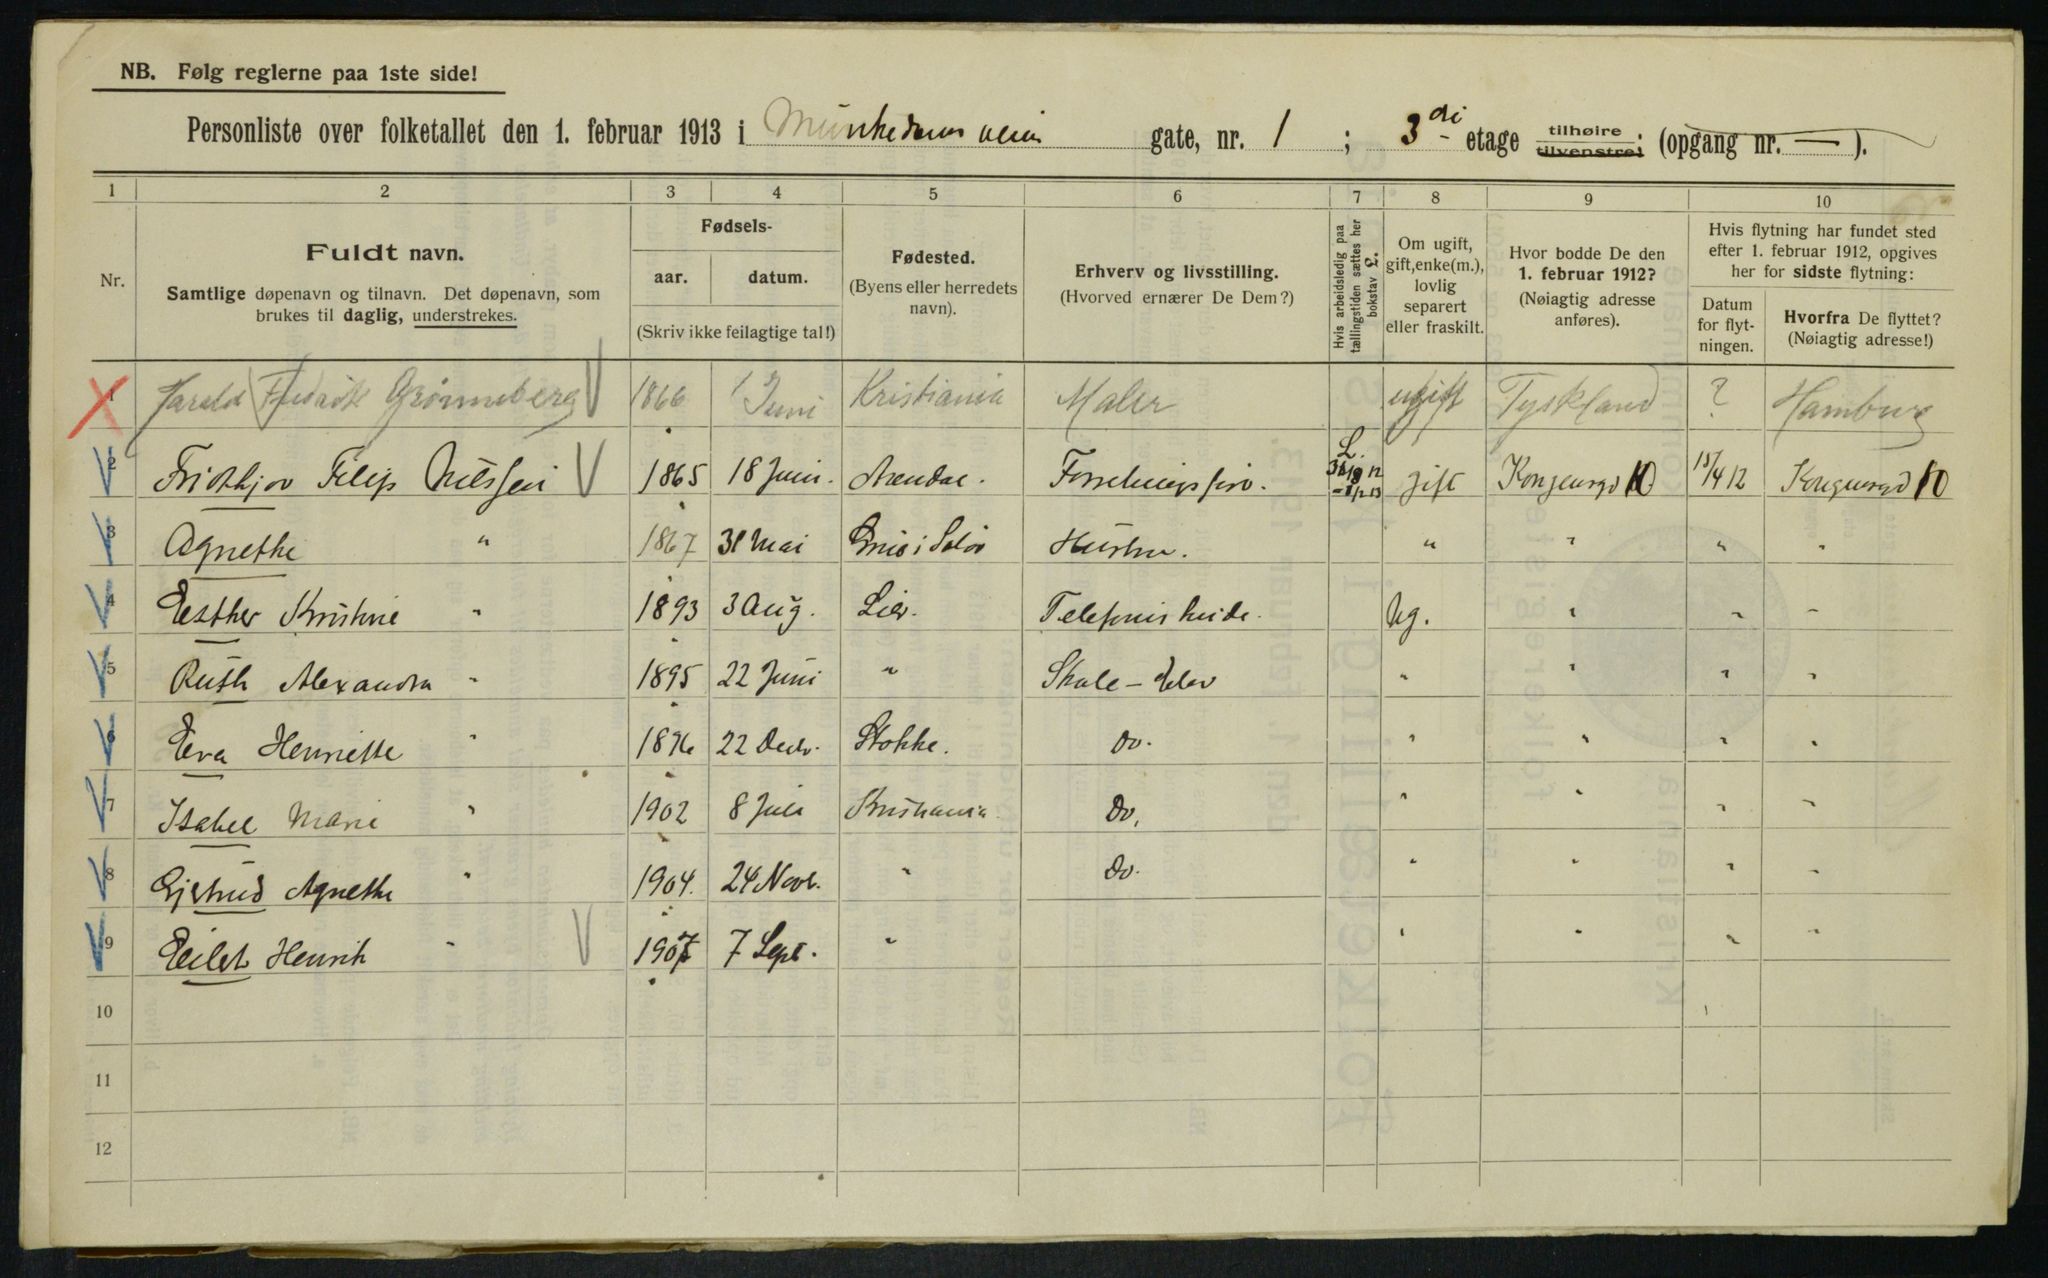 NB. Følg reglerne paa 1ste side!
Personliste over folketallet den 1. februar 1913 i Munkedamsveien gate, nr. 1 ; 3di etage tilhøire tilvenstre; (opgang nr. — ).
1 2 3 4 5 6 7 8 9 10
Nr.
Fuldt navn.
Samtlige døpenavn og tilnavn. Det døpenavn, som
brukes til daglig, understrekes.
Fødsels-
aar. datum.
(Skriv ikke feilagtige tal!)
Fødested.
(Byens eller herredets
navn).
Erhverv og livsstilling.
(Hvorved ernærer De Dem?)
Hvis arbeidsledig paa
tællingstiden sættes her
bokstav L.
Om ugift,
gift, enke(m.),
lovlig
separert
eller fraskilt.
Hvor bodde De den
1. februar 1912?
(Nøiagtig adresse
anføres).
Hvis flytning har fundet sted
efter 1. februar 1912, opgives
her for sidste flytning:
Datum
for flyt-
ningen.
Hvorfra De flyttet?
(Nøiagtig adresse!)
1 Harald Fredrik Grønneberg 1866 1 Juni Kristiania Maler ugift Tyskland ? Hamburg
2 Fridthjov Filip Nilssen 1865 18 Juni. Arendal. L. gift Kongensgd 10 15/4 12 Kongensgd 10
3 Agnethe " 1867 31 Mai Hustru. " " " "
4 Esther Kristine " 1893 3 Aug. Lier. Telefonistinde. Ug. " " "
5 Ruth Alexandra " 1895 22 Juni " Skole-Elev " " " "
6 Eva Henriette " 1896 22 Decbr. Stokke. Do. " " " "
7 Isabel Marie " 1902 8 Juli Kristiania. Do. " " " "
8 Gjertrud Agnethe " 1904. 24 Novb. " Do. " " " "
9 Eilet Henrik " 1907 7 Sept. " " " " "
10
11
12